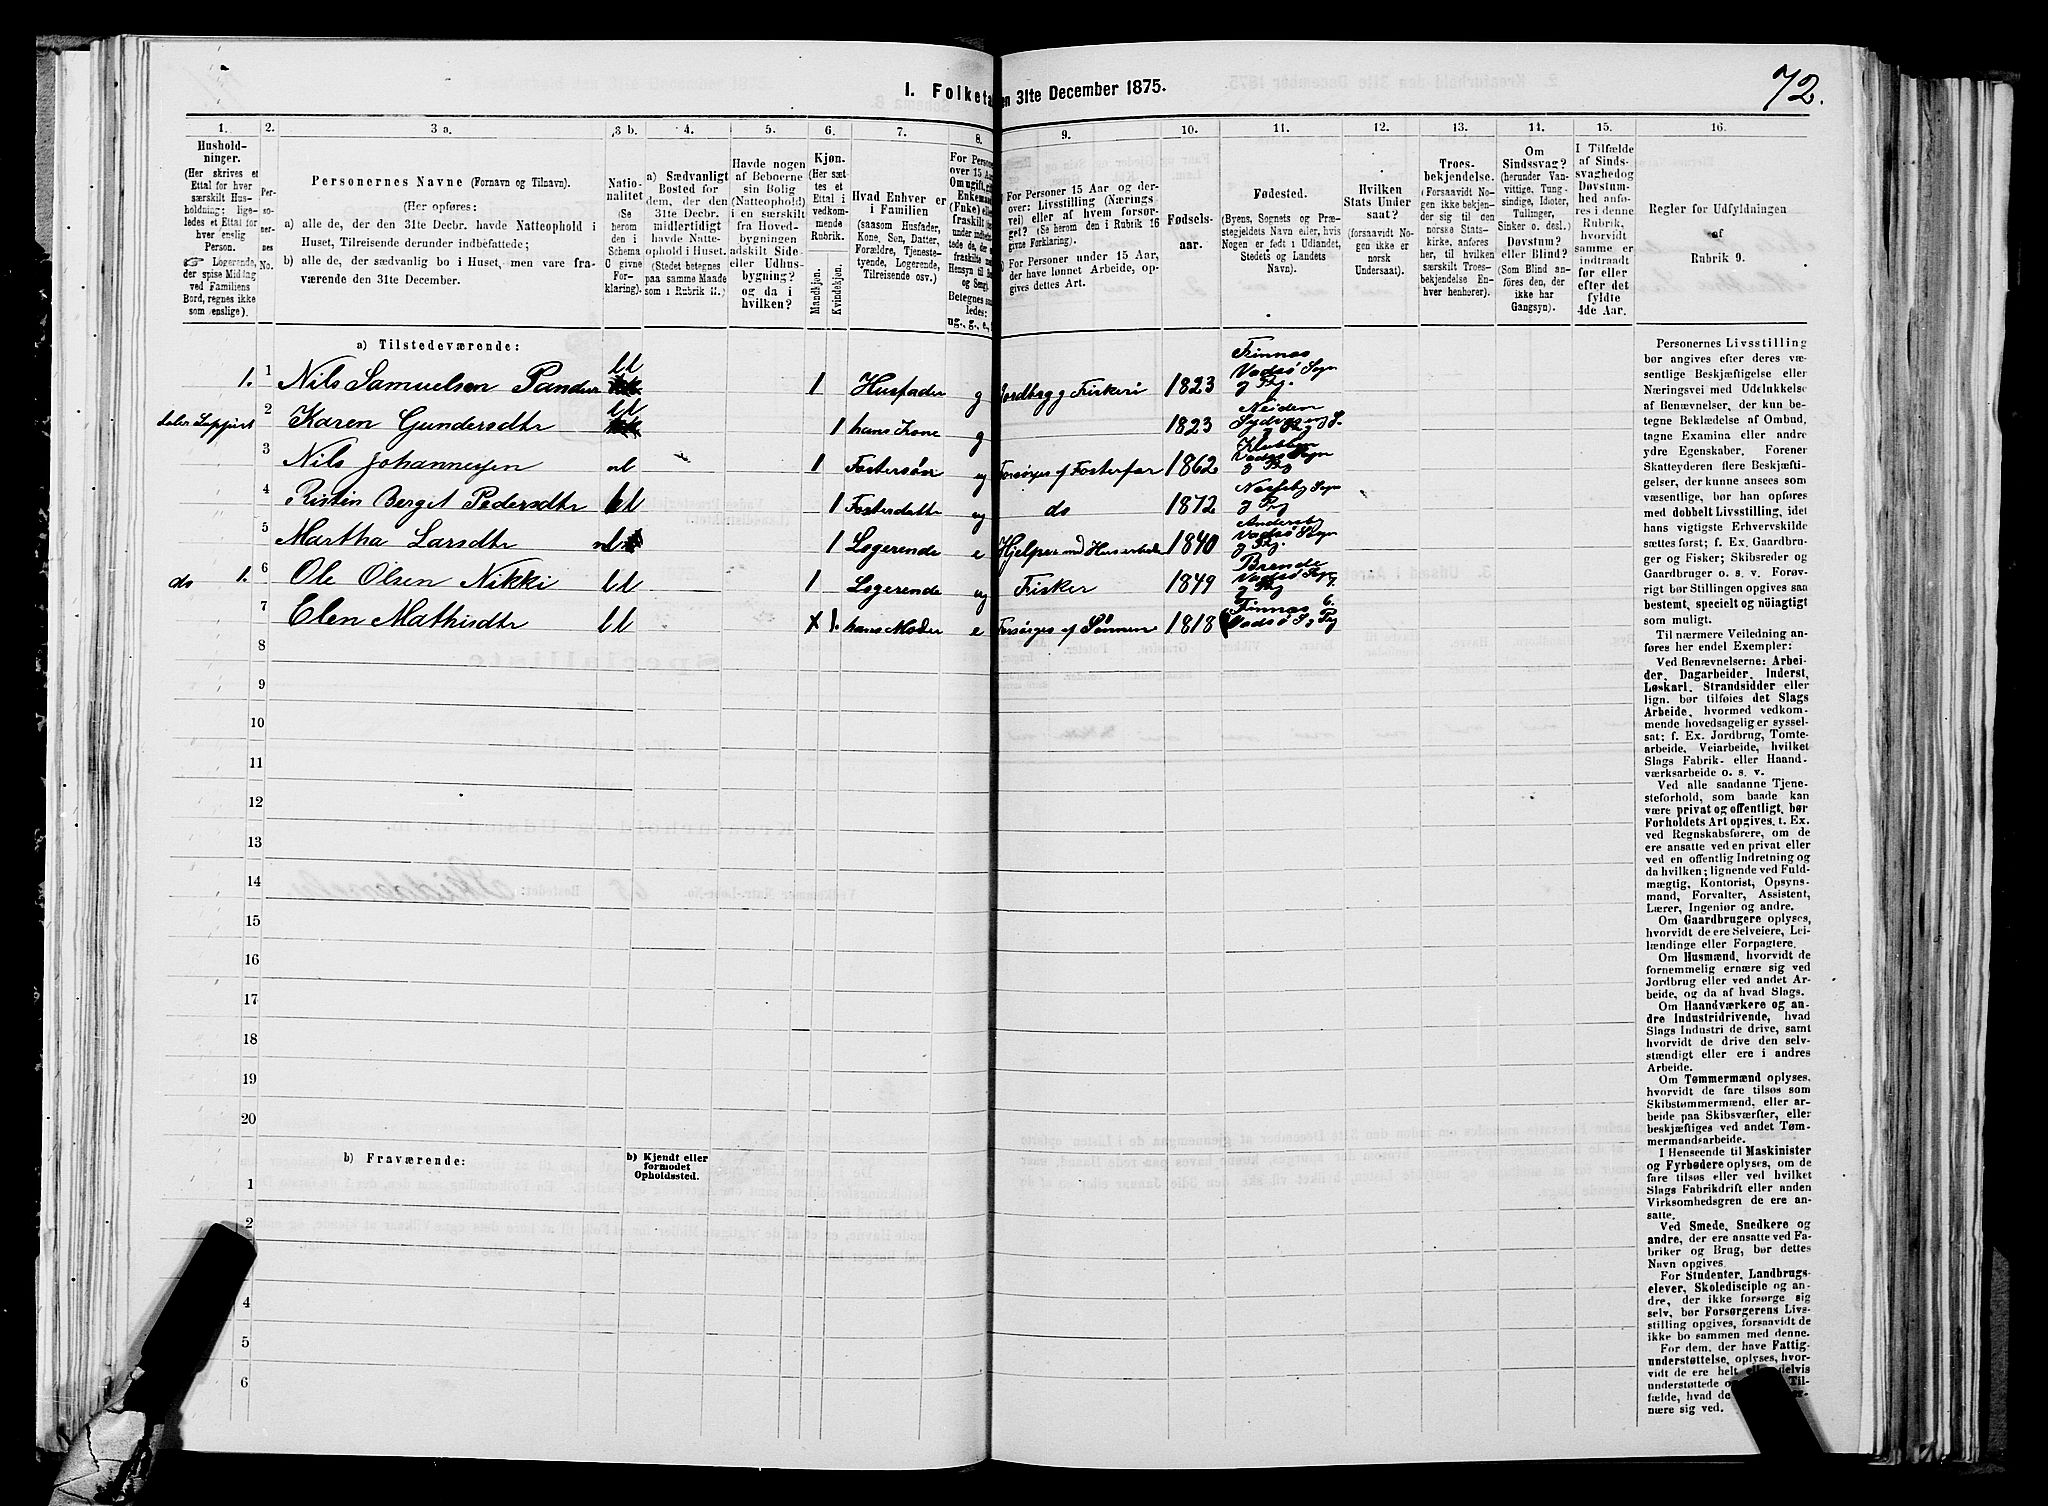 72.
I. Folketa en 31te December 1875.
1. 2. 3 a. 3 b. 4. 5. 6. 7. 8. 9. 10. 11. 12. 13. 14. 15. 16.
Hushold-
ninger.
(Her skrives et
Ettal for hver
særskilt Hus-
holdning; lige-
ledes et Ettal for
hver enslig
Person.
☞ Logerende,
der spise Middag
ved Familiens
Bord, regnes ikke
som enslige).
Per-
so-
ner-
nes
No.
Personernes Navne (Fornavn og Tilnavn).
(Her opføres:
a) alle de, der den 31te Decbr. havde Natteophold i
Huset, Tilreisende derunder indbefattede;
b) alle de, der sædvanlig bo i Huset, men vare fra-
værende den 31te December.
Natio-
nalitet
(Se
herom
den i
Schema
C givne
For-
klaring).
a) Sædvanligt
Bosted for
dem, der den
31te Decbr.
midlertidigt
havde Natte-
ophold i Huset.
(Stedet betegnes
paa samme Maade
som i Rubrik 11.)
Havde nogen
af Beboerne
sin Bolig
(Natteophold)
i en særskilt
fra Hoved-
bygningen
adskilt Side-
eller Udhus-
bygning?
og da i
hvilken?
Kjøn.
(Her sæt-
tes et
Ettal i
vedkom-
mende
Rubrik.
Mandkjøn.
Kvindekjøn.
Hvad Enhver er
i Familien
(saasom Husfader,
Kone, Søn, Datter,
Forældre, Tjeneste-
tyende, Logerende,
Tilreisende osv.)
For Person
over 15 Aar
Om ugift, gif
Enkemand
(Enke) eller
fraskilt
Betegnes saa-
ledes:
ug., g., e.,
For Personer 15 Aar og der-
over: Livsstilling (Nærings
vei) eller af hvem forsør-
get? (Se herom den i Rubrik 16
givne Forklaring).
For Personer under 15 Aar,
der have lønnet Arbeide, op-
gives dettes Art.
Fødsels-
aar.
Fødested.
(Byens, Sognets og Præ-
stegjeldets Navn eller, hvis
Nogen er født i Udlandet,
Stedets og Landets
Navn).
Hvilken
Stats Under
saat?
(forsaavidt No-
gen ikke er
norsk
Undersaat).
Troes-
bekjendelse.
(Forsaavidt No-
gen ikke bekjen-
der sig til den
norske Stats-
kirke, anføres
her, til hvilken
særskilt Troes-
bekjendelse En-
hver henhører).
Om
Sindssvag?
(herunder Van-
vittige, Tung-
sindige, Idioter,
Tullinger,
Sinker o. desl.)
Døvstum?
eller Blind?
(Som Blind an-
føres den, der
ikke har
Gangsyn).
I Tilfælde
af Sinds-
svaghed og
Døvstum-
hed anfø-
res i denne
Rubrik,
hvorvidt
samme er
indtraadt
før eller
efter det
fyldte
4de Aar.
Regler for Udfyldningen
af
Rubrik 9.
a) Tilstedeværende:
1. 1 Nils Samuelsen Pander ll 1 Husfader g Jordbrug Fiskeri 1823 Finnæs Vadsø Sogn og Prg.
2 Karen Gundersdtr ll 1 hans Kone g 1823 Neiden
3 Nils Johannesen nl 1 Fostersøn ug Forsørges af Fosterfar 1862 Klubben Vadsø Sogn og Prg
4 Ristin Bergit Pedersdtr ll 1 Fosterdattr ug do 1872 Nesseby Sogn og Prg
5 Martha Larsdtr nl 1 Logerende e Hjelper med Husarbeide 1840 Andersby Vadsø Sogn og Prg.
do 1. 6 Ole Olsen Nikki ll 1 Logerende ug Fisker 1849 Vadsø Sogn og Prg
7 Elen Mathisdtr ll 1. hans Moder e Forsørges af Sønnen 1818 Finnæs Vadsø S og Prg
8
9
10
11
12
13
14
15
16
17
18
19
20
b) Fraværende: b) Kjendt eller
formodet
Opholdssted.
1
2
4
5
6
Personernes Livsstilling
bør angives efter deres væ-
sentlige Beskjæftigelse eller
Næringsvei med Udelukkelse
af Benævnelser, der kun be-
tegne Beklædelse af Ombud,
tagne Examina eller andre
ydre Egenskaber. Forener
Skatteyderen flere Beskjæfti-
gelser, der kunne ansees som
væsentlige, bør han opgives
med dobbelt Livsstilling, idet
hans vigtigste Erhvervskilde
sættes først; f. Ex. Gaardbru-
ger og Fisker; Skibsreder og
Gaardbruger o. s. v. Forøv-
rigt bør Stillingen opgives saa
bestemt, specielt og nøiagtigt
som muligt.
Til nærmere Veiledning an-
føres her endel Exempler:
Ved Benævnelserne: Arbei-
der, Dagarbeider, Inderst,
Løskarl, Strandsidder eller
lign. bør tilføies det Slags
Arbeide, hvormed vedkom-
mende hovedsagelig er syssel-
sat; f. Ex. Jordbrug, Tomte-
arbeide, Veiarbeide, hvilket
Slags Fabrik- eller Haand-
værksarbeide o. s. v.
Ved alle saadanne Tjene-
steforhold, som baade kan
være privat og offentligt, bør
Forholdets Art opgives. t. Ex.
ved Regnskabsførere, om de
ere ansatte ved en privat eller
ved en offentlig Indretning og
da hvilken; lignende ved Fuld-
mægtig, Kontorist, Opsyns-
mand, Forvalter, Assistent,
Lærer, Ingeniør og andre.
Om Gaardbrugere oplyses,
hvorvidt de ere Selveiere, Lei-
lændinge eller Forpagtere.
Om Husmænd, hvorvidt de
fornemmelig ernære sig ved
Jordbrug eller ved andet Ar-
beide, og da af hvad Slags.
Om Haandværkere og an-
dre Industridrivende, hvad
Slags Industri de drive, samt
hvorvidt de drive den selv-
stændigt eller ere i andres
Arbeide.
Om Tømmermænd oplyses,
hvorvidt de fare tilsøs som
Skibstømmermænd, eller ar-
beide paa Skibsværfter, eller
beskjæftiges ved andet Tøm-
mermandsarbeide.
I Henseende til Maskinister
og Fyrbødere oplyses, om de
fare tilsøs eller ved hvilket
Slags Fabrikdrift eller anden
Virksomhedsgren de ere an-
satte.
Ved Smede, Snedkere og
andre, der ere ansatte ved Fa-
briker og Brug, bør dettes
Navn opgives.
For Studenter, Landbrugs-
elever, Skoledisciple og an-
dre, der ikke forsørge sig
selv, bør Forsørgerens Livs-
stilling opgives, forsaavidt de
ikke bo sammen med denne.
For dem, der have Fattig-
understøttelse, oplyses, hvor-
vidt de ere helt eller delvis
understøttede
fælde, hvad de
nære sig ved.